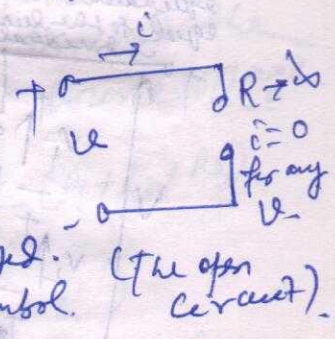 i
+
R→∞
v
i=0
for any
v.
-
ed. (The open
mbol. circuit).